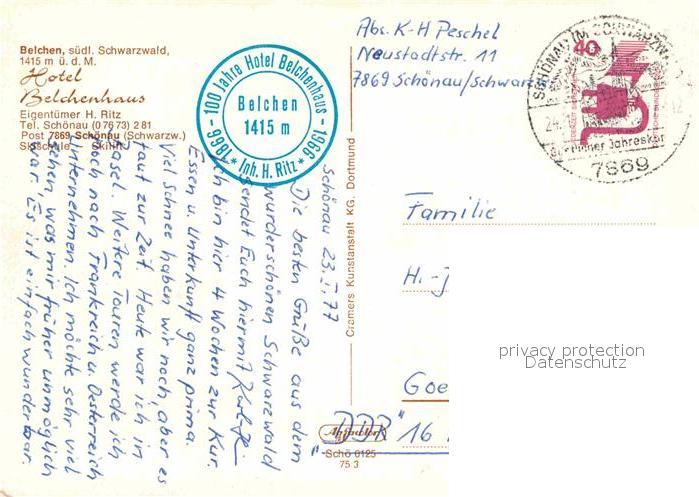 Belchen, südl. Schwarzwald,
1415 m ü. d. M.
Hotel
Belchenhaus
Eigentümer H. Ritz
Tel. Schönau (07673) 281
Post 7869 Schönau (Schwarzw.)
Skischule Skilift
1866 - 100 Jahre Hotel Belchenhaus - 1966
Belchen
1415 m
* Inh. H. Ritz *
Schönau 23.I.77
Die besten Grüße aus dem
wunderschönen Schwarzwald
sendet Euch hiermit
Ich bin hier 4 Wochen zur Kur.
Essen u. Unterkunft ganz prima.
Viel Schnee haben wir noch, aber es
taut zur Zeit. Heute war ich in
Basel. Weitere Touren werde ich
noch nach Frankreich u. Oesterreich
Unternehmen. Ich möchte sehr viel
sehen was mir früher unmöglich
war. Es ist einfach wunderbar.
Cramers Kunstanstalt KG, Dortmund
Schö 0125
75 3
Abs. K-H Peschel
Neustadtstr. 11
7869 Schönau/Schwarzw
40
SCHÖNAU IM SCHWARZW
7869
Familie
H.-J
Goe
"DDR" 16
privacy protection
Datenschutz